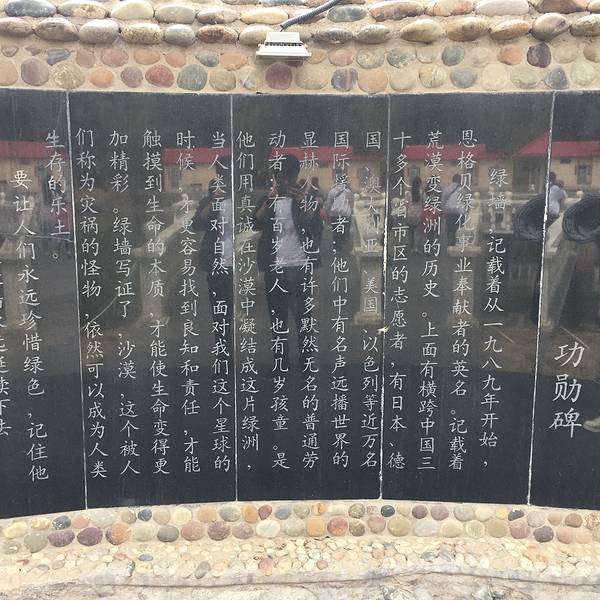 功勋碑
绿墙，记载着从一九八九年开始，
恩格贝绿化事业奉献者的英名。记载着
荒漠变绿洲的历史。上面有横跨中国三
十多个省市区的志愿者，有日本、德
国、澳大利亚、美国、以色列等近万名
国际援助者；他们中有名声远播世界的
显赫人物，也有许多默然无名的普通劳
动者；有百岁老人，也有几岁孩童。是
他们用真诚在沙漠中凝结成这片绿洲，
当人类面对自然，面对我们这个星球的
时候，才更容易找到良知和责任，才能
触摸到生命的本质，才能使生命变得更
加精彩。绿墙写证了，沙漠，这个被人
们称为灾祸的怪物，依然可以成为人类
生存的乐土。
要让人们永远珍惜绿色，记住他
延续下去